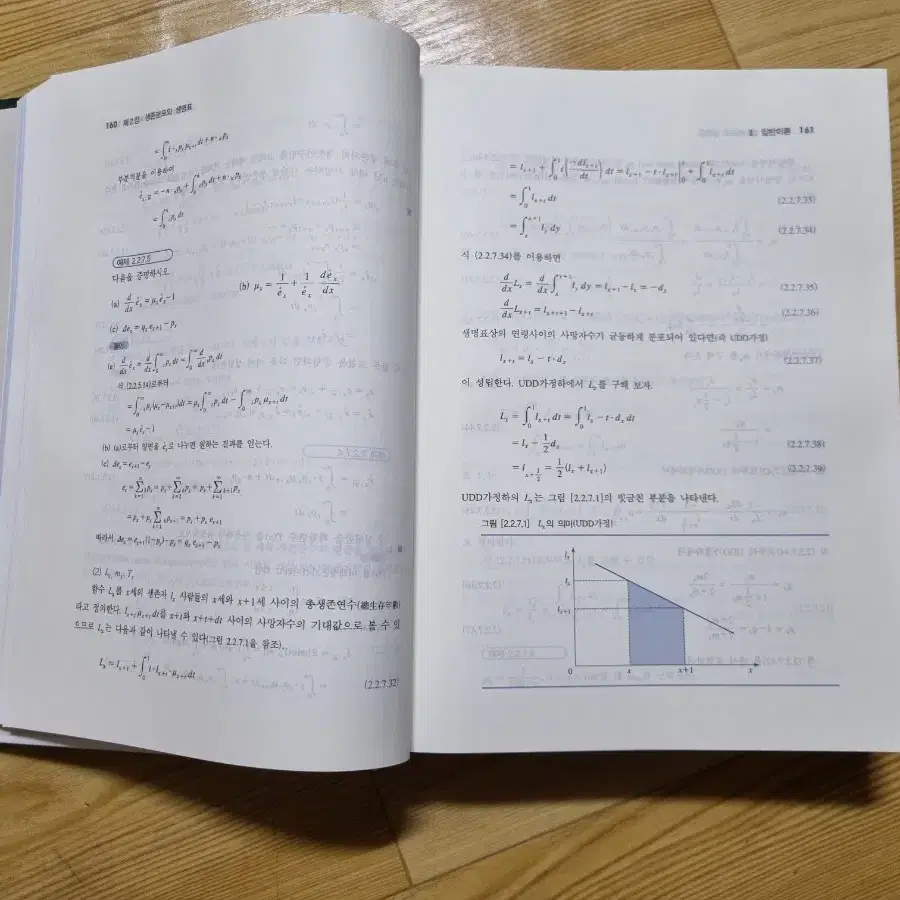 160 제2장 생존분포와 생명표
= ∫₀ⁿ t · ₜpₓ μₓ₊ₜ dt + n · ₙpₓ
부분적분을 이용하여
e̊ₓ:n̅| = −n · ₙpₓ + ∫₀ⁿ ₜpₓ dt + n · ₙpₓ
= ∫₀ⁿ ₜpₓ dt
예제 2.2.7.5
다음을 증명하시오.
(a) d/dx e̊ₓ = μₓ e̊ₓ − 1
(b) μₓ = 1/e̊ₓ + 1/e̊ₓ · de̊ₓ/dx
(c) Δeₓ = qₓ eₓ₊₁ − pₓ
풀이
(a) d/dx e̊ₓ = d/dx ∫₀^∞ ₜpₓ dt = ∫₀^∞ d/dx ₜpₓ dt
식 (2.2.5.14)로부터
= ∫₀^∞ ₜpₓ(μₓ − μₓ₊ₜ)dt = μₓ ∫₀^∞ ₜpₓ dt − ∫₀^∞ ₜpₓ μₓ₊ₜ dt
= μₓ e̊ₓ − 1
(b) (a)로부터 양변을 e̊ₓ로 나누면 원하는 결과를 얻는다.
(c) Δeₓ = eₓ₊₁ − eₓ
= pₓ + pₓ eₓ₊₁
따라서, Δeₓ = eₓ₊₁(1 − pₓ) − pₓ = qₓ eₓ₊₁ − pₓ
(2) Lₓ, mₓ, Tₓ
함수 Lₓ를 x세의 생존자 lₓ 사람들의 x세와 x+1세 사이의 총생존연수(總生存年數)
라고 정의한다. lₓ₊ₜ μₓ₊ₜ dt를 x+t와 x+t+dt 사이의 사망자수의 기대값으로 볼 수 있
으므로 Lₓ는 다음과 같이 나타낼 수 있다(그림 2.2.7.1을 참조).
Lₓ = lₓ₊₁ + ∫₀¹ t · lₓ₊ₜ · μₓ₊ₜ dt (2.2.7.32)
일반이론 161
= lₓ₊₁ + ∫₀¹ t(−dlₓ₊ₜ/dt) dt = lₓ₊₁ − t · lₓ₊ₜ|₀¹ + ∫₀¹ lₓ₊ₜ dt
= ∫₀¹ lₓ₊ₜ dt (2.2.7.33)
= ∫ₓ^(x+1) l_y dy (2.2.7.34)
식 (2.2.7.34)를 이용하면
d/dx Lₓ = d/dx ∫ₓ^(x+1) l_y dy = lₓ₊₁ − lₓ = −dₓ (2.2.7.35)
d/dx Lₓ₊₁ = lₓ₊₂ − lₓ₊₁ (2.2.7.36)
생명표상의 연령사이의 사망자수가 균등하게 분포되어 있다면(즉 UDD가정)
lₓ₊ₜ = lₓ − t · dₓ (2.2.7.37)
이 성립한다. UDD가정하에서 Lₓ를 구해 보자.
Lₓ = ∫₀¹ lₓ₊ₜ dt = ∫₀¹ lₓ − t · dₓ dt
= lₓ − 1/2 dₓ (2.2.7.38)
= l_(x+1/2) = 1/2(lₓ + lₓ₊₁) (2.2.7.39)
UDD가정하의 Lₓ는 그림 [2.2.7.1]의 빗금친 부분을 나타낸다.
그림 [2.2.7.1] Lₓ의 의미(UDD가정)
lₓ
lₓ
lₓ₊₁
0 x x+1 x